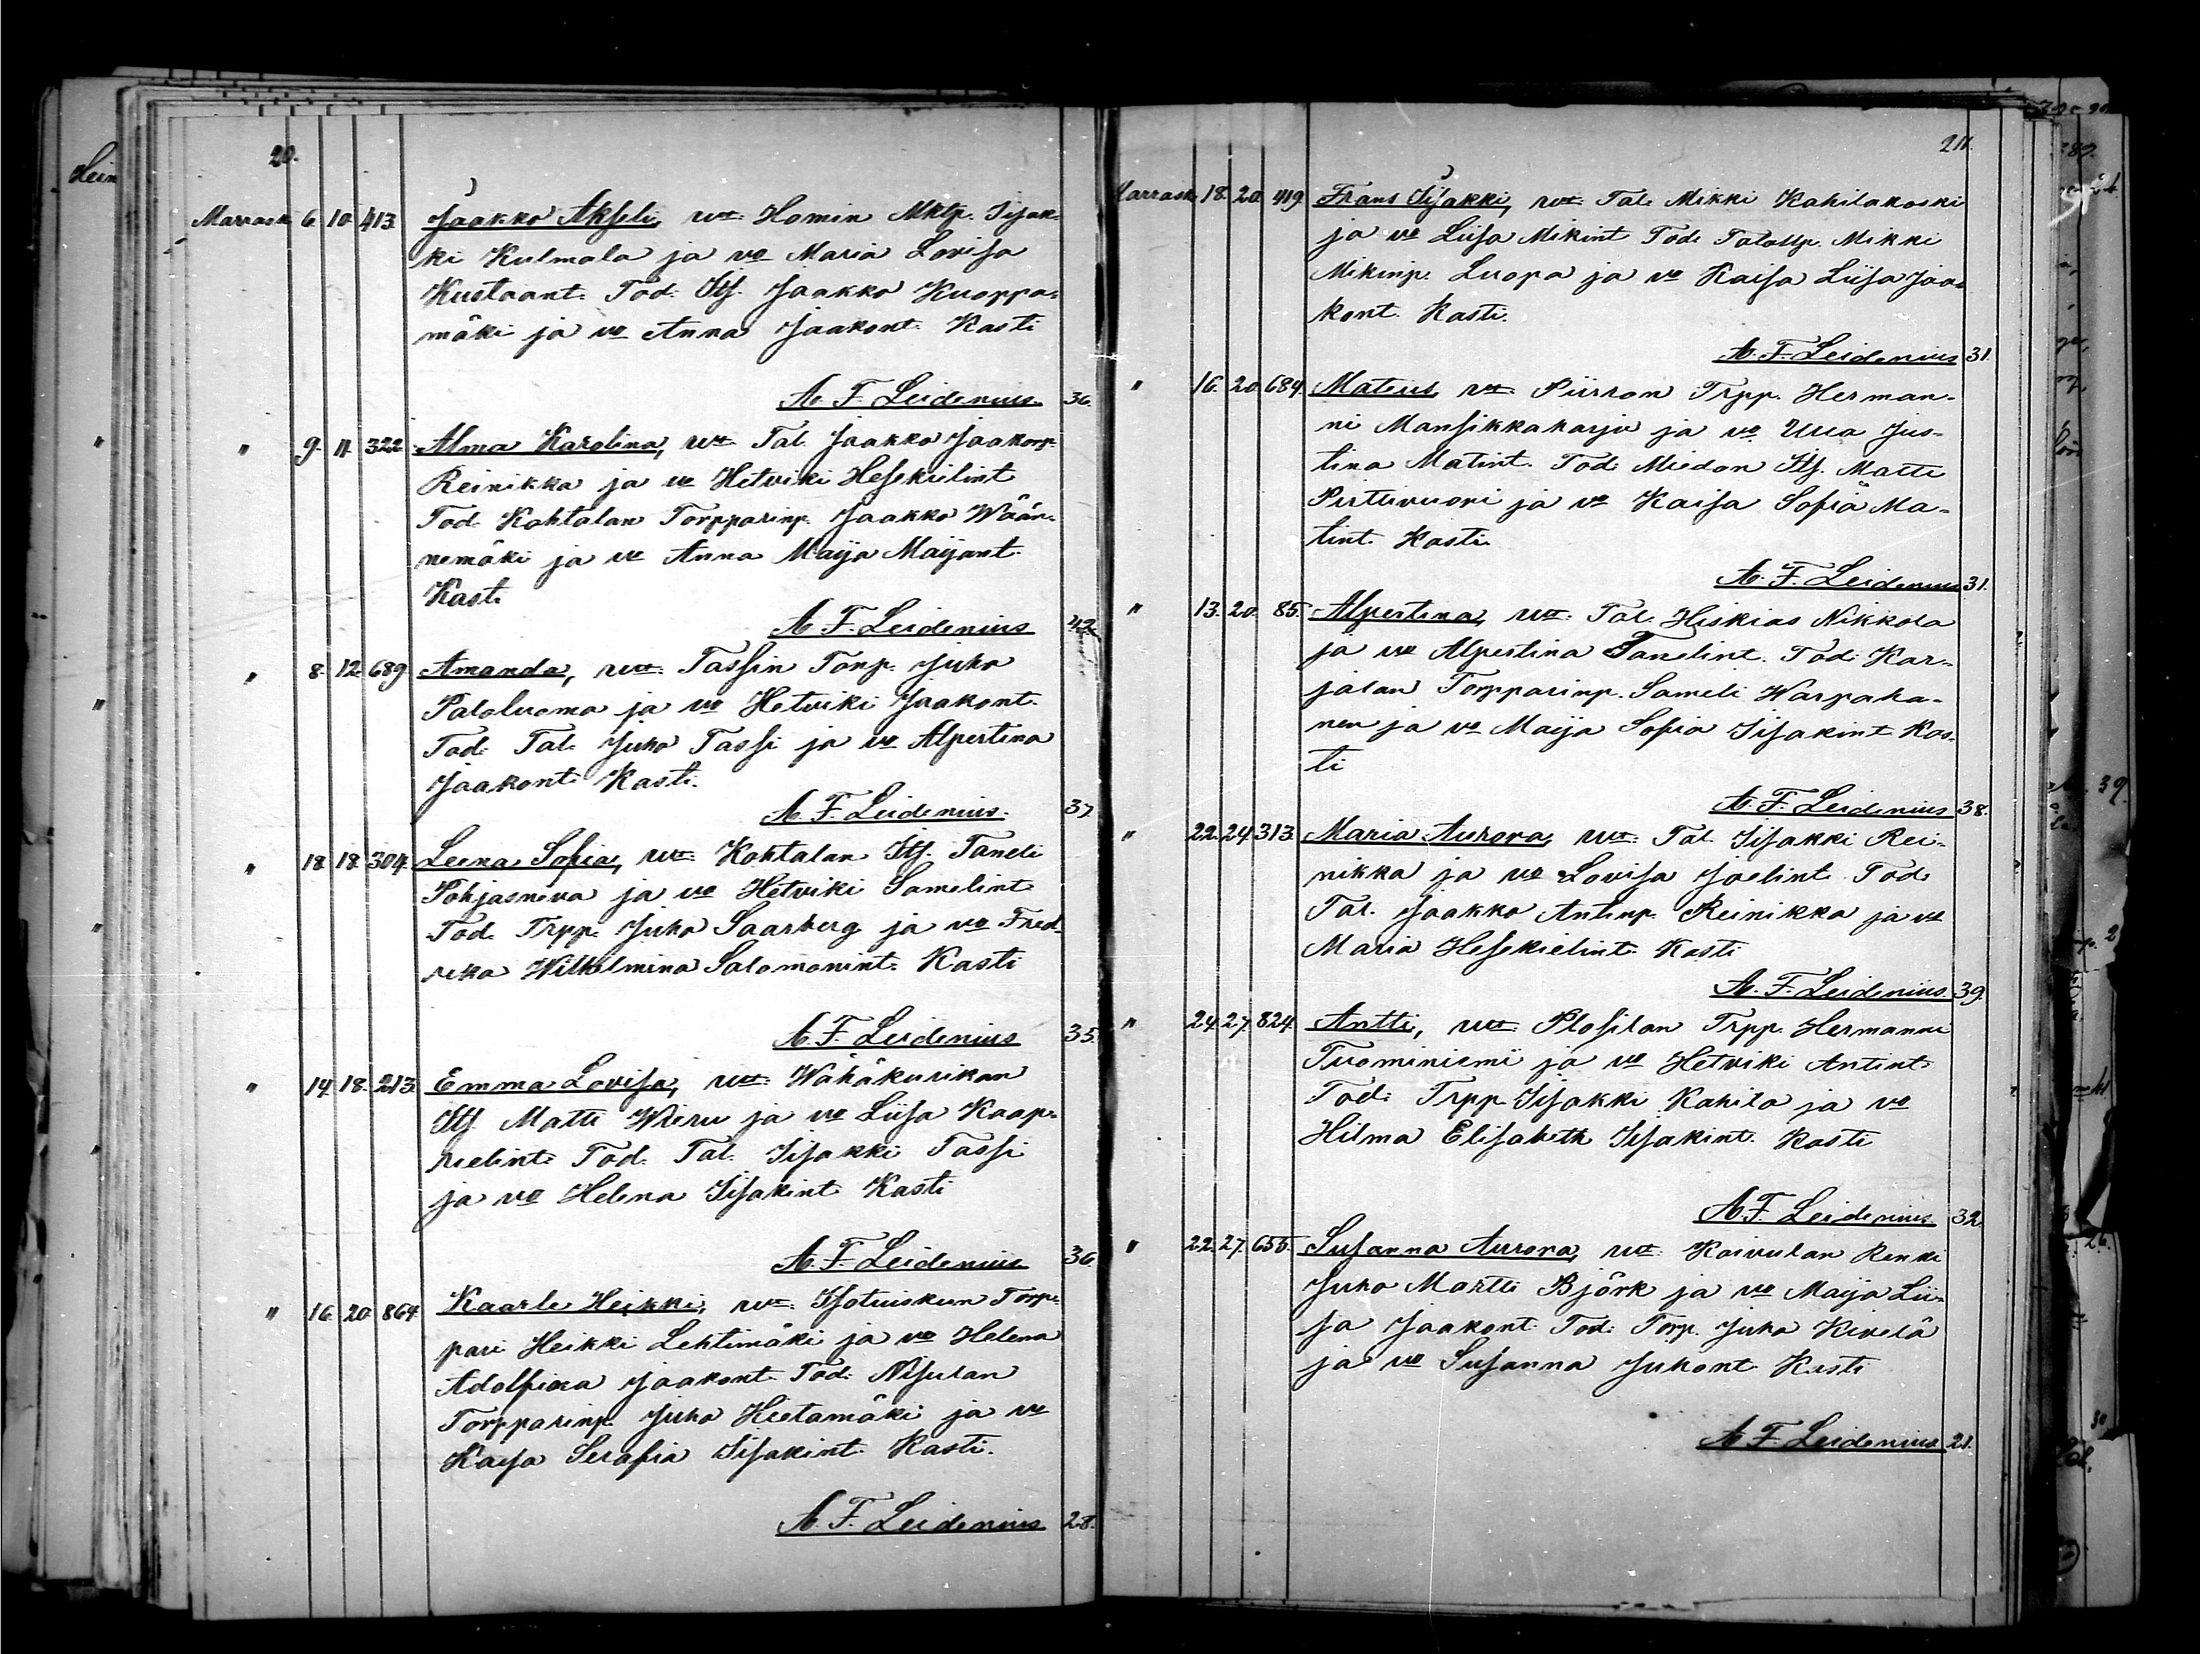 20.
Marrask. 6. 10. 413. Jaakko Akseli, vt: Homin Mktp. Iisak-
ki Kulmala ja vo Maria Lovisa
Kustaant. Tod. Its. Jaakko Kuoppa-
mäki ja vo Anna Jaakont. Kasti
A. F. Leidenius. 36.
" 9. 11. 322. Alma Karolina, vt: Tal. Jaakko Jaakonp.
Reinikka ja vo Hetviki Hesekielint
Tod. Kohtalan Torpparinp. Jaakko Wään-
nemäki ja vo Anna Maija Maijant.
Kasti
A. F. Leidenius 42.
" 8. 12. 689. Amanda, vt: Tassin Torp. Juho
Paloluoma ja vo Hetviki Jaakont.
Tod. Tal. Juho Tassi ja vo Alpertina
Jaakont. Kasti.
A. F. Leidenius. 37
" 18. 18. 304. Leena Sofia, vt: Kohtalan Its. Taneli
Pohjasneva ja vo Hetviki Samelint
Tod. Trpp. Juho Saarberg ja vo Fred-
rika Wilhelmina Salomonint. Kasti
A. F. Leidenius 35.
" 14. 18. 213. Emma Lovisa, vt: Wähäkurikan
Its. Matti Wieru ja vo Liisa Kaap-
rielint. Tod. Tal. Iisakki Tassi
ja vo Helena Iisakint. Kasti
A. F. Leidenius 36.
" 16. 20. 864. Kaarle Heikki, vt: Isotuiskun Torp-
pari Heikki Lehtimäki ja vo Helena
Adolfiina Jaakont. Tod. Nisulan
Torpparinp. Juho Hietamäki ja vo
Kaisa Serafia Iisakint. Kasti.
A. F. Leidenius 28.
21.
Marrask. 18. 20. 419. Frans Iisakki, vt: Tal. Mikki Kahilakoski
ja vo Liisa Mikint Tod. Talollp. Mikki
Mikinp. Luopa ja vo Kaisa Liisa Jaa-
kont. Kasti.
A. F. Leidenius 31.
" 16. 20. 684. Mateus, vt: Piirron Trpp. Herman-
ni Mansikkaharju ja vo Ulla Jus-
tina Matint. Tod. Miedon Its. Matti
Pirttivuori ja vo Kaisa Sofia Ma-
tint. Kasti
A. F. Leidenius 31.
" 13. 20. 85. Alpertina, vt: Tal. Hiskias Nikkola
ja vo Alpertina Tanelint. Tod. Kar-
jalan Torpparinp. Sameli Warpaha-
nen ja vo Maija Sofia Iisakint Kas-
ti
A. F. Leidenius 38.
" 22. 24. 313. Maria Aurora, vt: Tal. Iisakki Rei-
nikka ja vo Lovisa Joelint. Tod.
Tal. Jaakko Antinp. Reinikka ja vo
Maria Hesekielint. Kasti
A. F. Leidenius. 39.
" 24. 27. 824. Antti, vt: Plosilan Trpp. Hermanni
Tuominiemi ja vo Hetviki Antint.
Tod. Trpp. Iisakki Kahila ja vo
Hilma Elisabeth Iisakint. Kasti
A. F. Leidenius 32
" 22. 27. 655. Susanna Aurora, vt: Koivulan Renki
Juho Martti Björk ja vo Maija Lii-
sa Jaakont. Tod. Torp. Juho Kivelä
ja vo Susanna Juhont. Kasti
A. F. Leidenius 21.